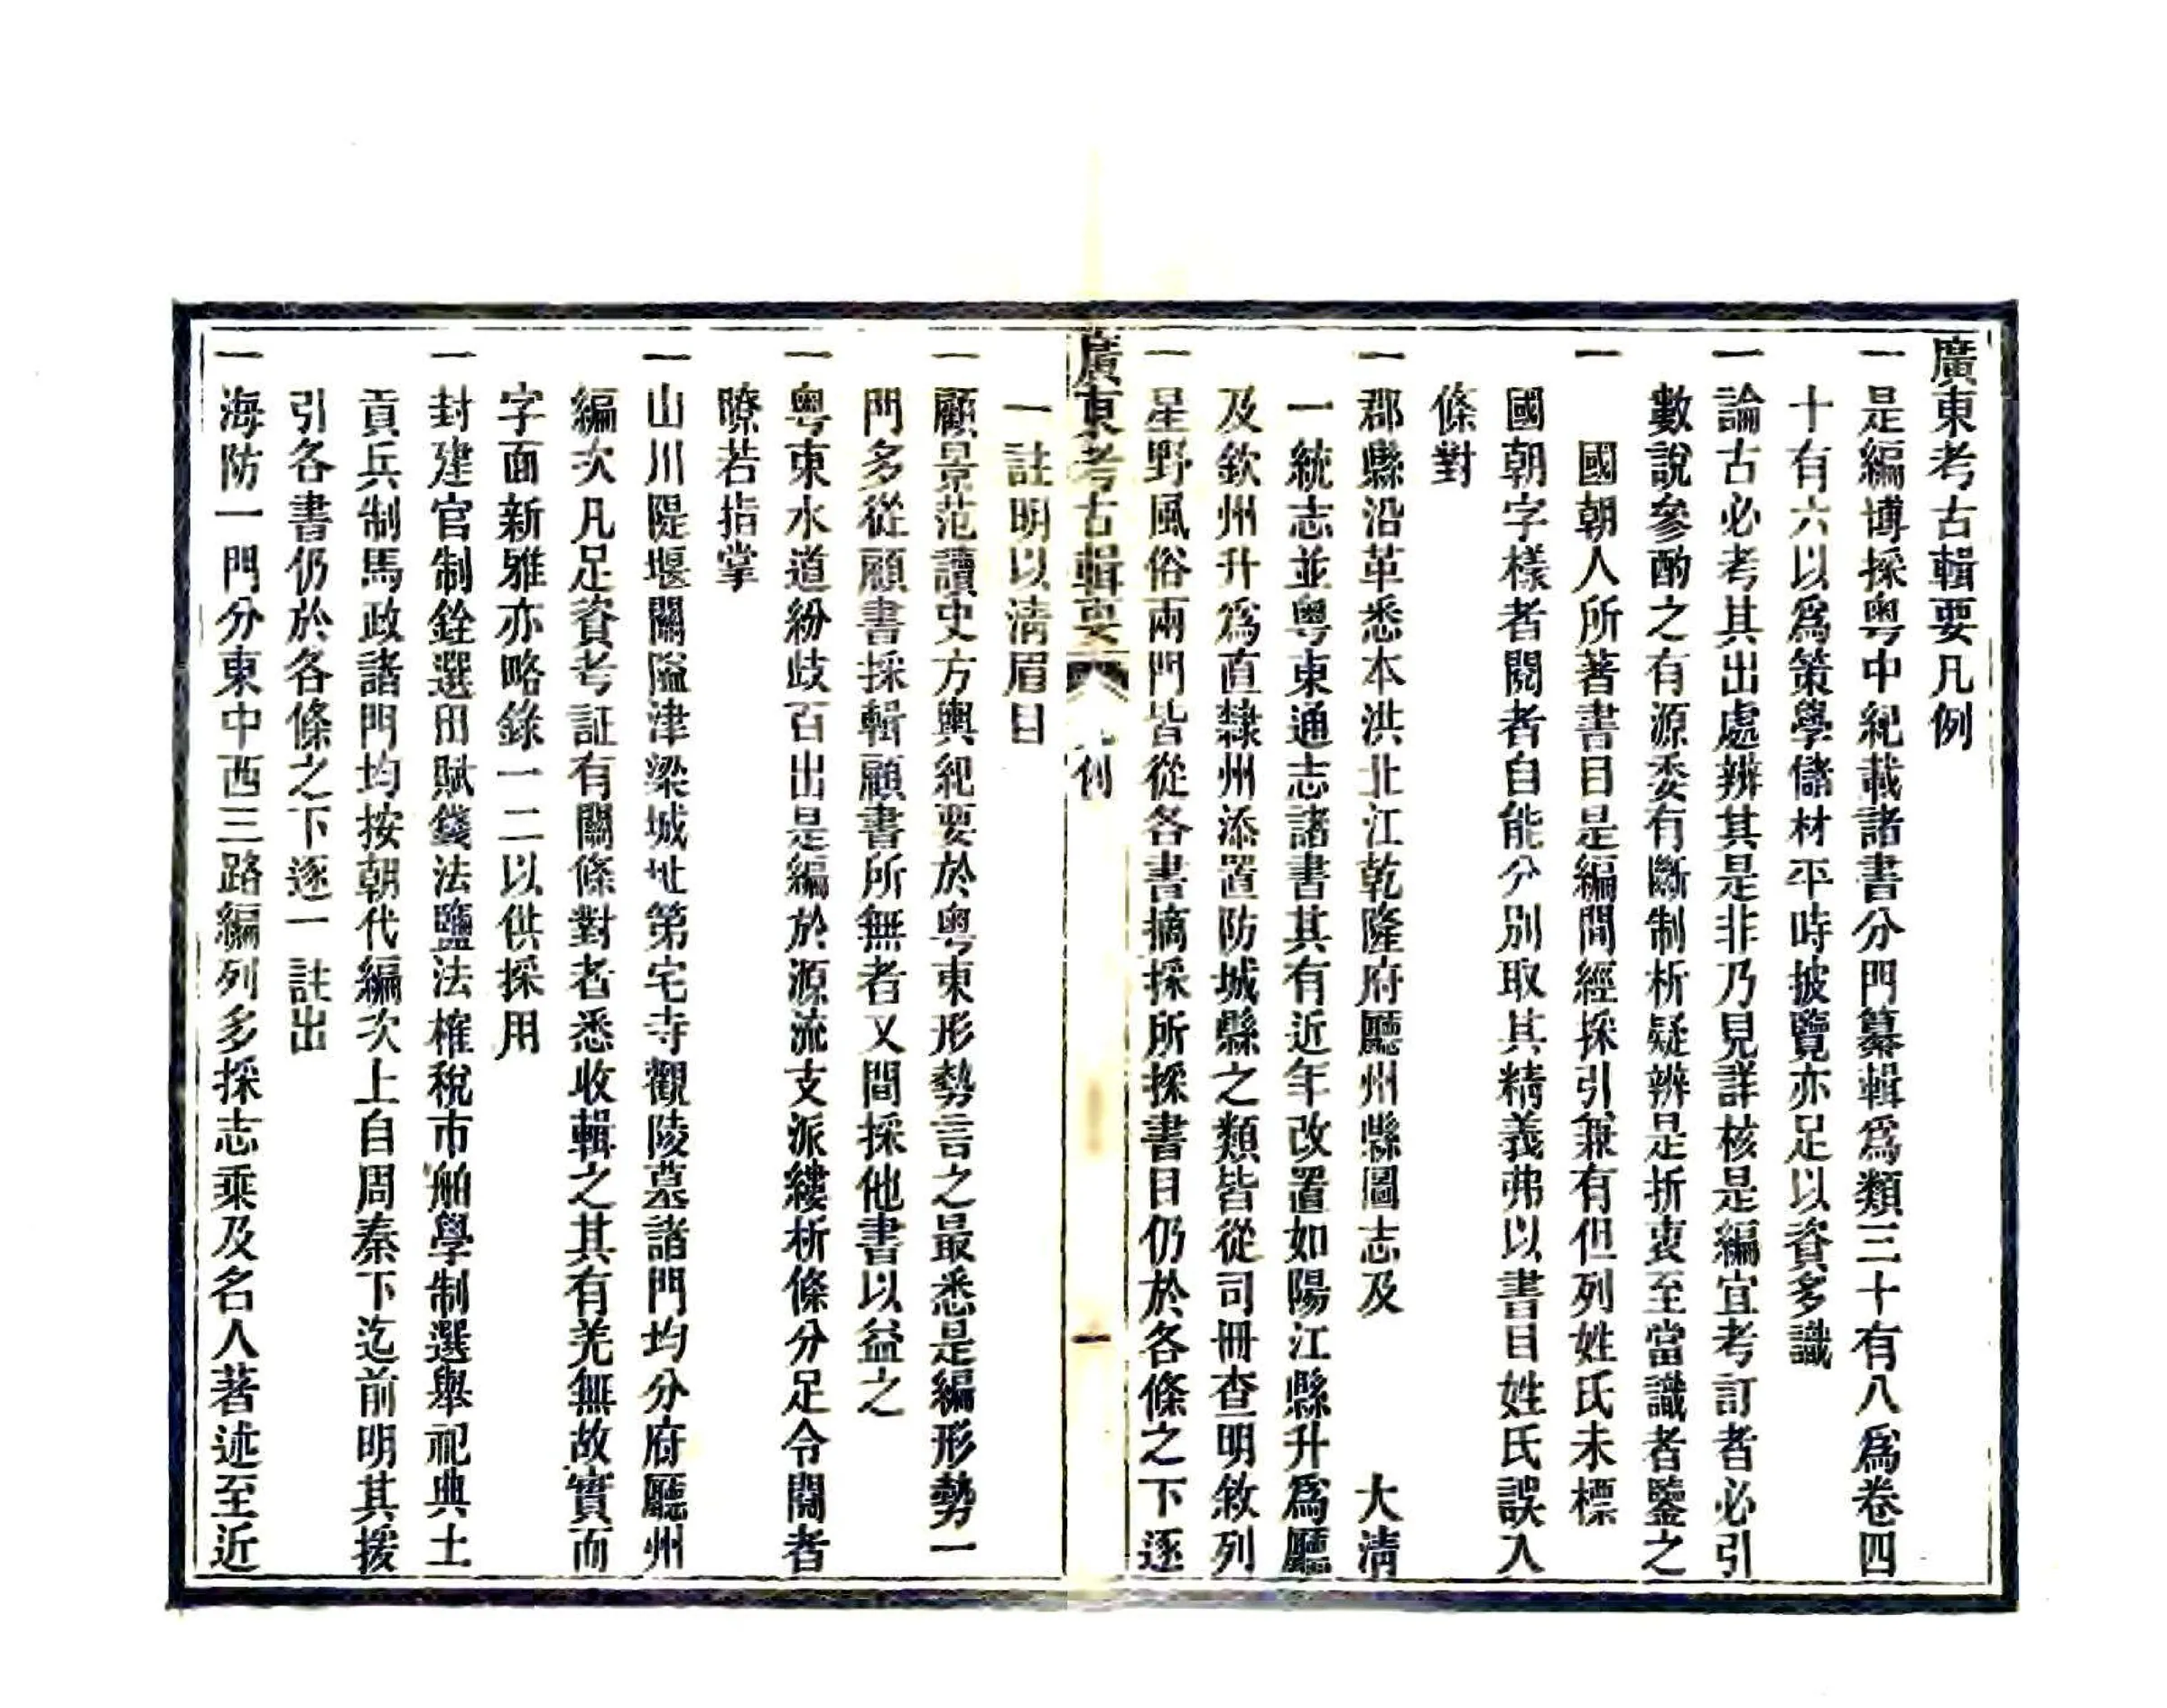 廣東考古輯要凡例
一是編博採粵中紀載諸書分門纂輯爲類三十有八爲卷四
十有六以爲策學儲材平時披覽亦足以資多識
一論古必考其出處辨其是非乃見詳核是編宜考訂者必引
數說參酌之有源委有斷制析疑辨是折衷至當識者鑒之
一 國朝人所著書目是編間經採引兼有但列姓氏未標
國朝字樣者閱者自能分別取其精義弗以書目姓氏誤入
條對
一郡縣沿革悉本洪北江乾隆府廳州縣圖志及 大清
一統志並粵東通志諸書其有近年改置如陽江縣升爲廳
及欽州升爲直隸州添置防城縣之類皆從司冊查明敘列
一星野風俗兩門皆從各書摘採所採書目仍於各條之下逐
廣東考古輯要 凡例 一
一註明以清眉目
一顧景范讀史方輿紀要於粵東形勢言之最悉是編形勢一
門多從顧書採輯顧書所無者又間採他書以益之
一粵東水道紛歧百出是編於源流支派縷析條分足令閱者
瞭若指掌
一山川隄堰關隘津梁城址第宅寺觀陵墓諸門均分府廳州
編次凡足資考証有關條對者悉收輯之其有羌無故實而
字面新雅亦略錄一二以供採用
一封建官制銓選田賦錢法鹽法榷稅市舶學制選舉祀典土
貢兵制馬政諸門均按朝代編次上自周秦下迄前明其援
引各書仍於各條之下逐一註出
一海防一門分東中西三路編列多採志乘及名人著述至近